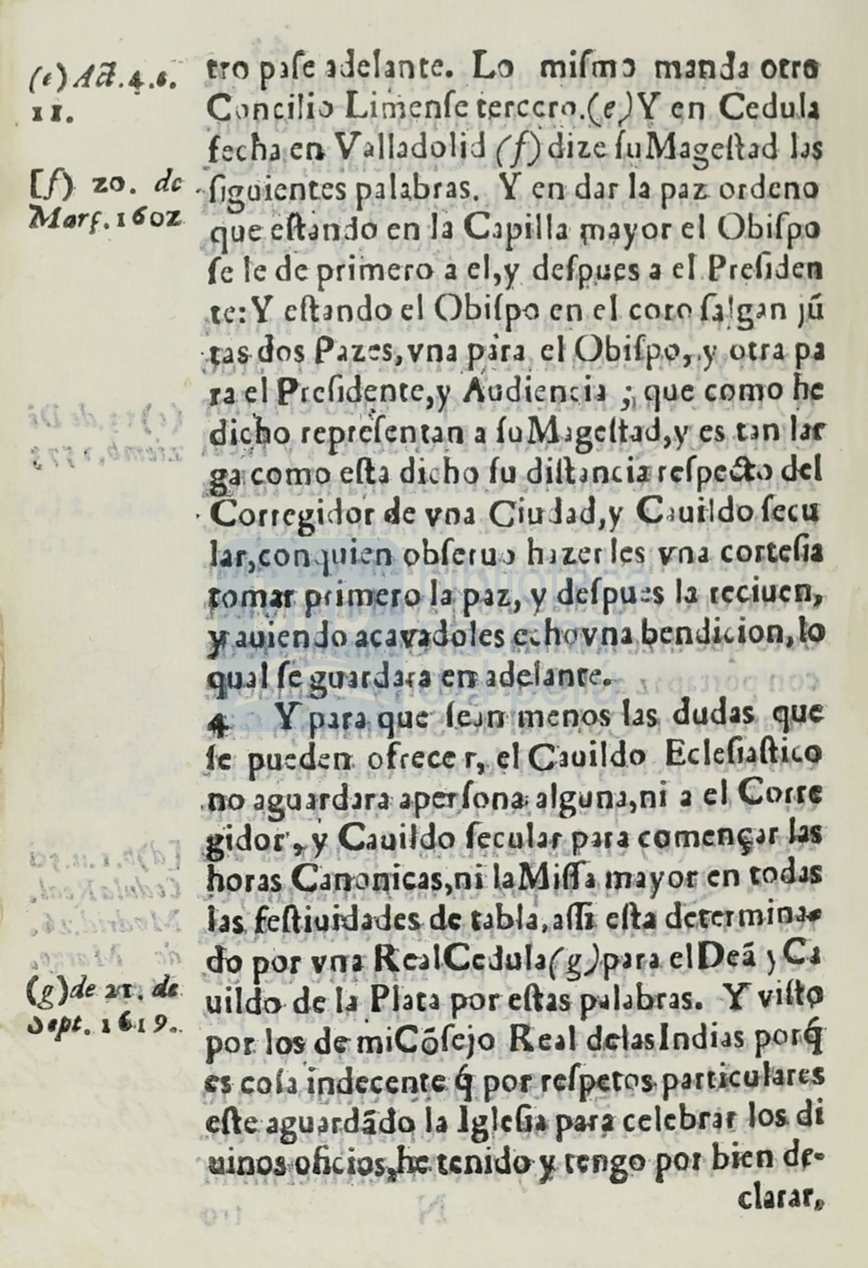 (e) Act. 4. c.
11.
[f) 20. de
Març. 1602
(g) de 21. de
Sept. 1619.
tro pase adelante. Lo miſmo manda otro
Concilio Limenſe tercero.(e) Y en Cedula
fecha en Valladolid (f) dize ſu Mageſtad las
ſiguientes palabras. Y en dar la paz ordeno
que eſtando en la Capilla mayor el Obiſpo
ſe le de primero a el, y deſpues a el Preſiden
te: Y eſtando el Obiſpo en el coro ſalgan jũ
tas dos Pazes, vna para el Obiſpo, y otra pa
ra el Preſidente, y Audiencia ; que como he
dicho repreſentan a ſu Mageſtad, y es tan lar
ga como eſta dicho ſu diſtancia reſpecto del
Corregidor de vna Ciudad, y Cauildo ſecu
lar, con quien obſeruo hazerles vna corteſia
tomar primero la paz, y deſpues la reciuen,
y auiendo acavadoles echo vna bendicion, lo
qual ſe guardara en adelante.
4 Y para que ſean menos las dudas que
ſe pueden ofrecer, el Cauildo Ecleſiaſtico
no aguardara aperſona alguna, ni a el Corre
gidor, y Cauildo ſecular para començar las
horas Canonicas, ni la Miſſa mayor en todas
las feſtiuidades de tabla, aſſi eſta determina-
do por vna Real Cedula (g) para el Deã y Ca
uildo de la Plata por eſtas palabras. Y viſto
por los de mi Cõſejo Real delas Indias porq̃
es coſa indecente q̃ por reſpetos particulares
eſte aguardãdo la Igleſia para celebrar los di
uinos oficios, he tenido y tengo por bien de-
clarar,